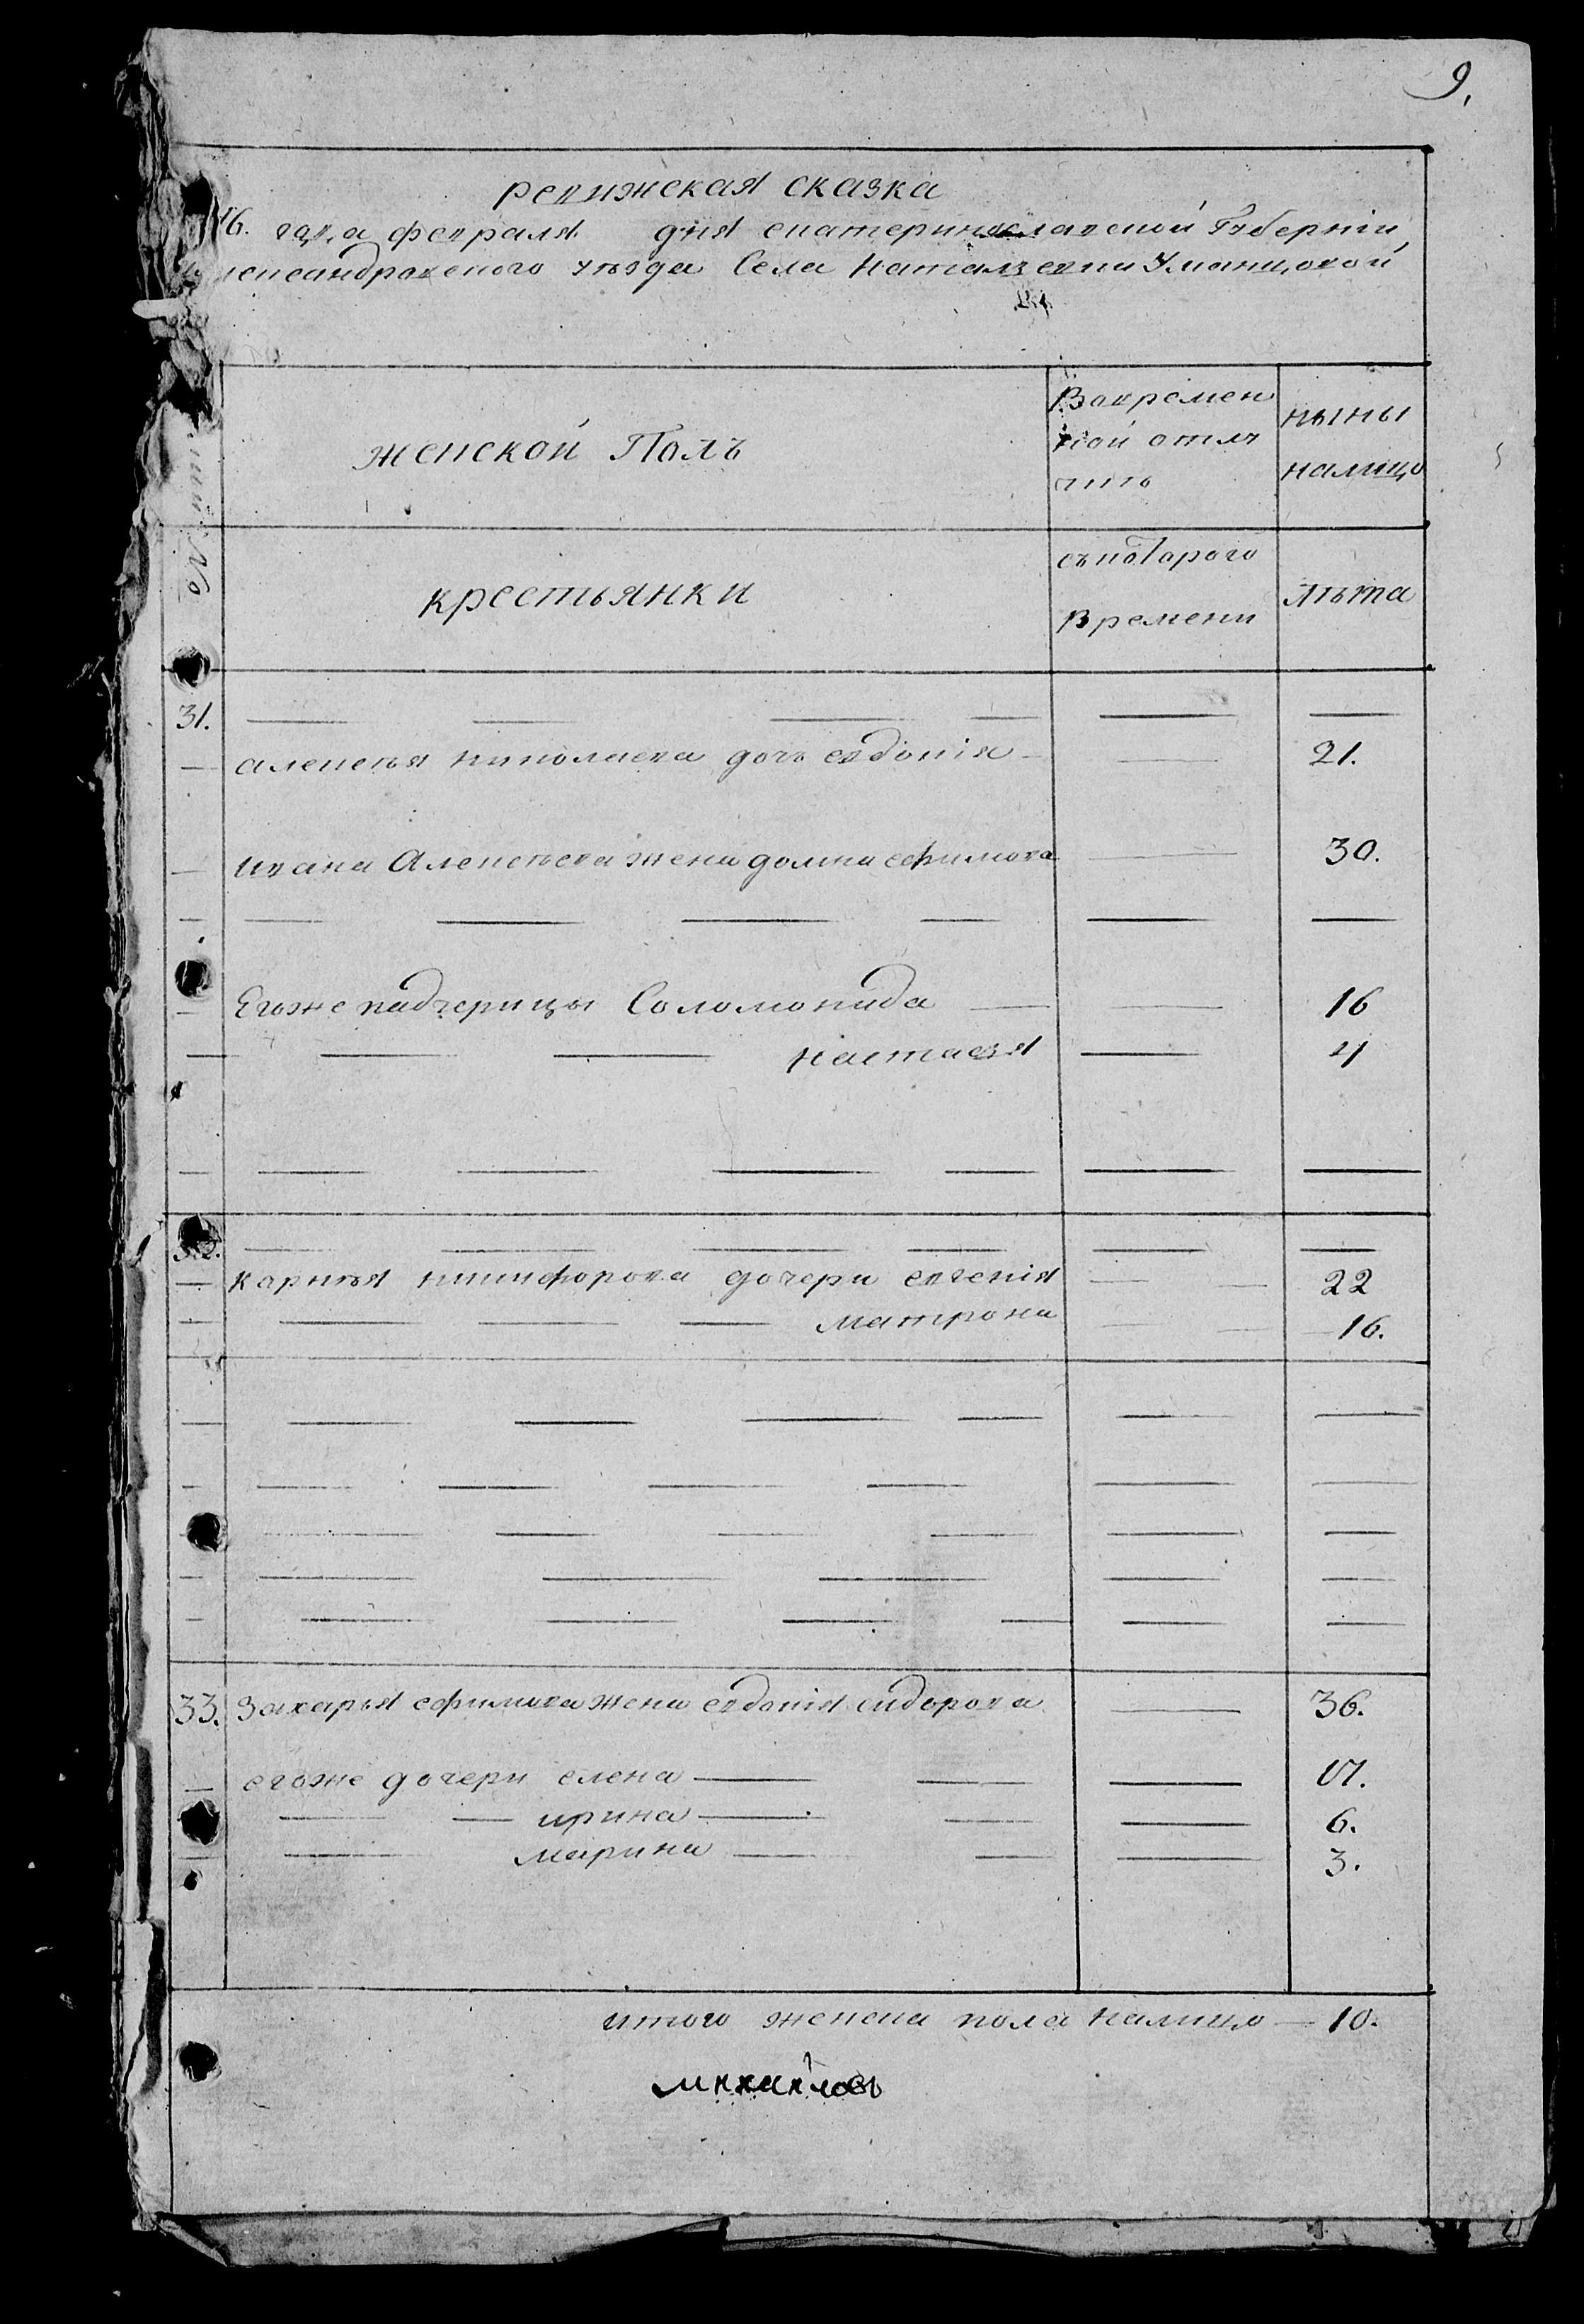 9.
ревижская сказка
16. года февраля дня екатеринославской Губернїи,
лександравского уезда Села Наталъевки Уманцовой
№
женской Полъ
Вовремен
ной отлу
чить
ныны
налицо
крестьянки
съкотораго
времени
лѣта
31. — — — — — —
— алексея николаева дочъ евдокїя — — 21.
— ивана Алексѣева жена домна ефимова — 30.
— — — — — — —
— Егоже падчерицы Соломонида — — 16
— — — настасья — 4
— — — — — — —
32. — — — — — —
— карнѣя никифорова дочери евгенїя — — 22
— — — — матрона — — 16.
— — — — — — —
— — — — — — —
— — — — — — —
— — — — — — —
— — — — — — —
33. Захарья ефимова жена евдокїя сидорова — 36.
— егоже дочери елена — — — 17.
— — ирина — — — 6.
— — марина — — — 3.
итого женска пола налицо — 10.
михайловъ